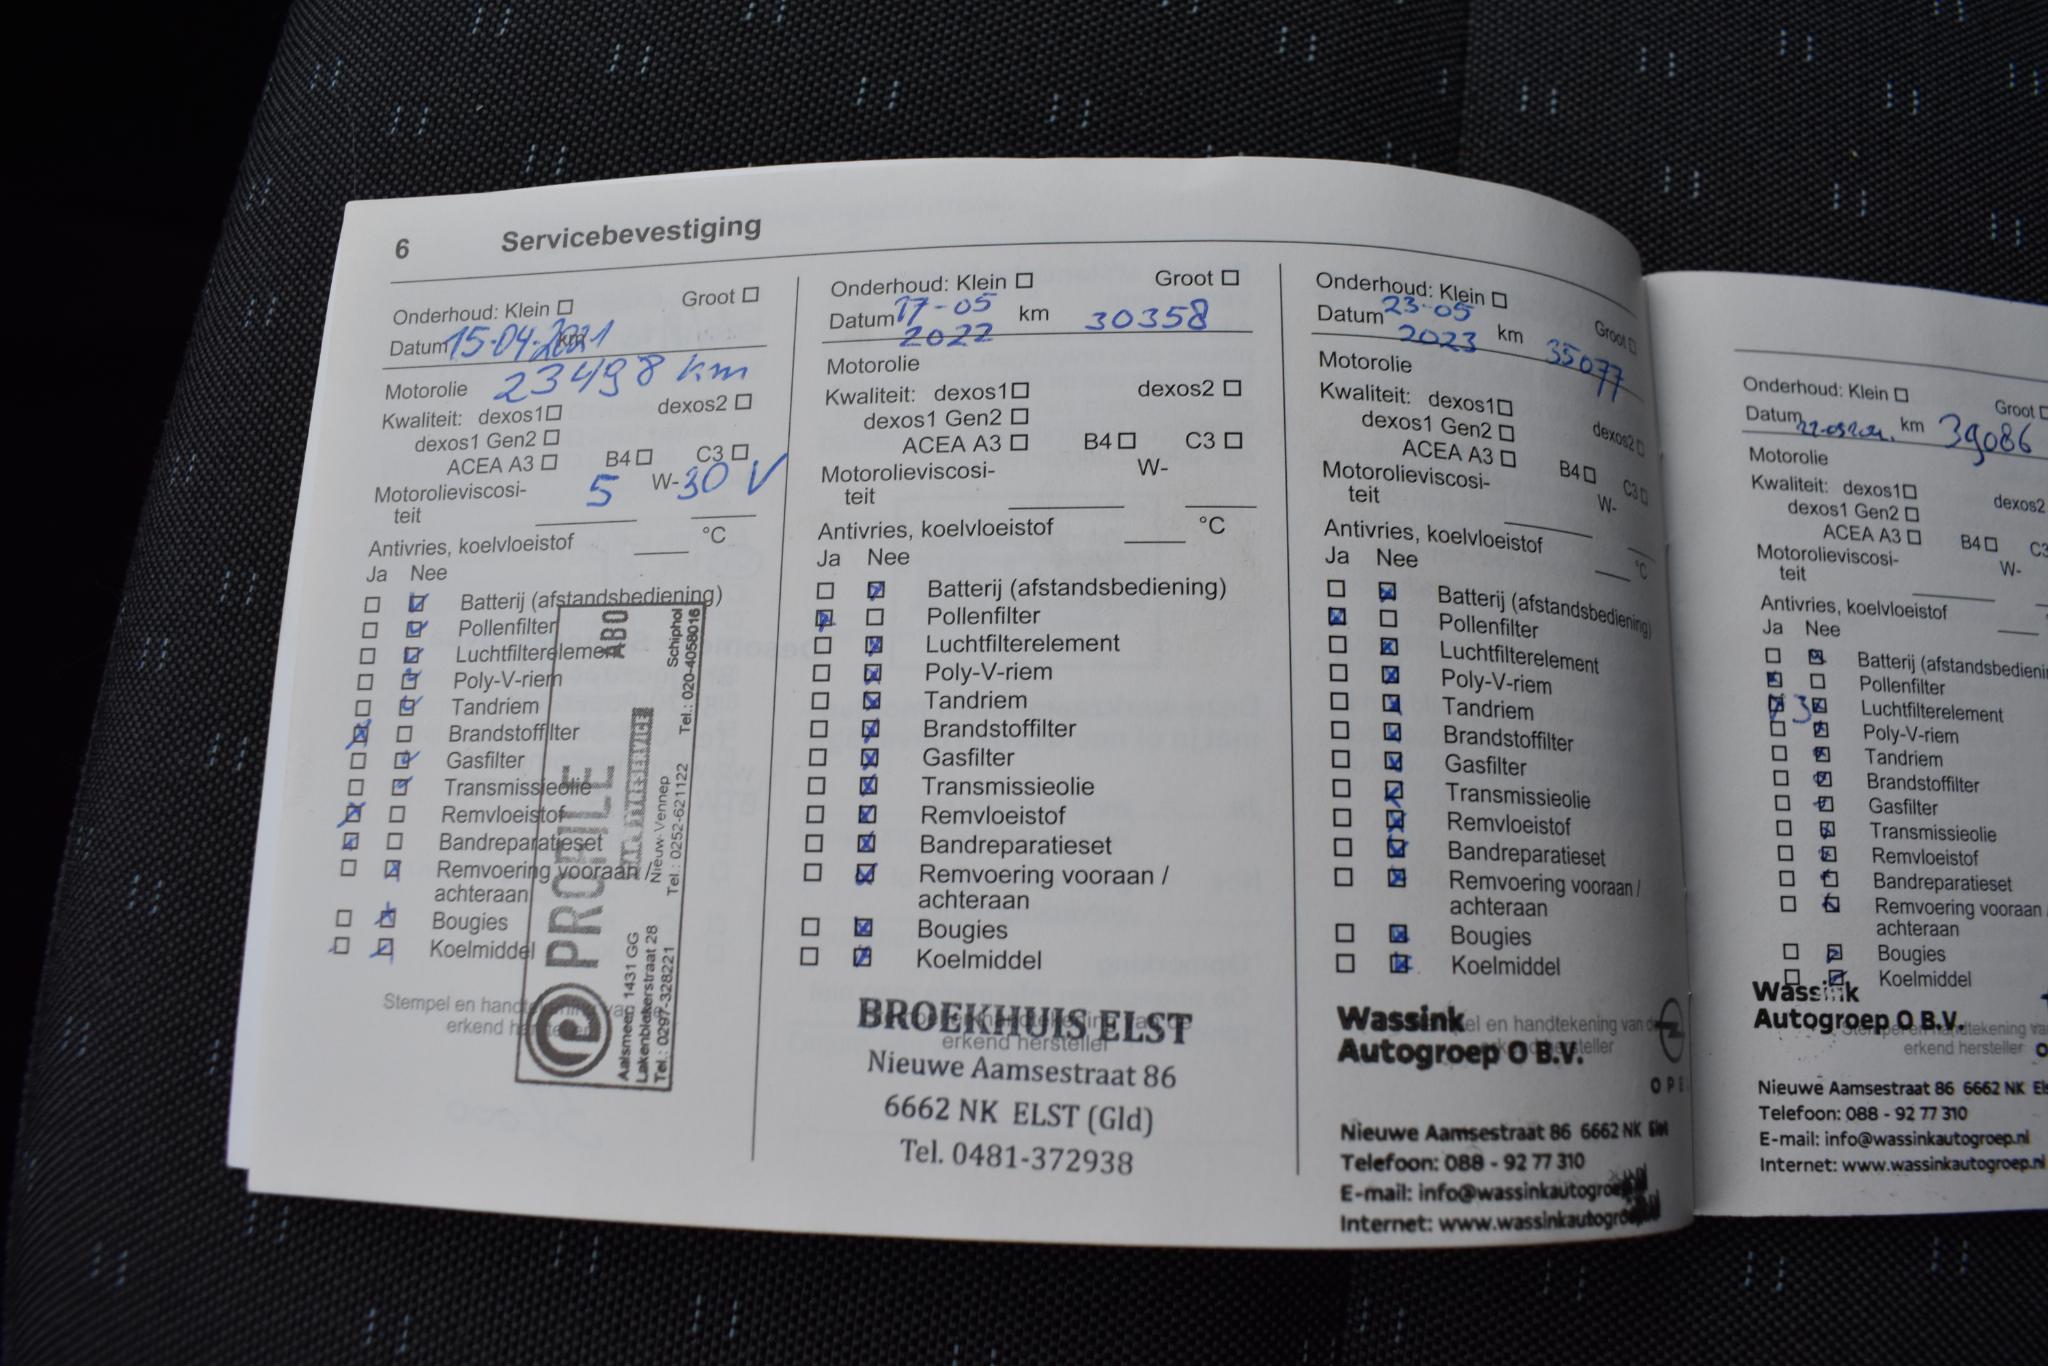 6 Servicebevestiging
Onderhoud: Klein ☐ Groot ☐
Datum 15-04-2021 km
Motorolie 23498 km
Kwaliteit: dexos1 ☐ dexos2 ☐
dexos1 Gen2 ☐
ACEA A3 ☐ B4 ☐ C3 ☐
Motorolieviscosi- 5 W-30 V
teit
Antivries, koelvloeistof °C
Ja Nee
Batterij (afstandsbediening)
Pollenfilter
Luchtfilterelement
Poly-V-riem
Tandriem
Brandstoffilter
Gasfilter
Transmissieolie
Remvloeistof
Bandreparatieset
Remvoering vooraan /
achteraan
Bougies
Koelmiddel
Stempel en handtekening van
erkend
PROFILE
ABO
Aalsmeer, 1431 GG
Lakenblekerstraat 28
Tel.: 0297-328221
Nieuw-Vennep
Tel.: 0252-621122
Schiphol
Tel.: 020-4058016
Onderhoud: Klein ☐ Groot ☐
Datum 17-05 km 30358
2022
Motorolie
Kwaliteit: dexos1 ☐ dexos2 ☐
dexos1 Gen2 ☐
ACEA A3 ☐ B4 ☐ C3 ☐
Motorolieviscosi- W-
teit
Antivries, koelvloeistof °C
Ja Nee
Batterij (afstandsbediening)
Pollenfilter
Luchtfilterelement
Poly-V-riem
Tandriem
Brandstoffilter
Gasfilter
Transmissieolie
Remvloeistof
Bandreparatieset
Remvoering vooraan /
achteraan
Bougies
Koelmiddel
BROEKHUIS ELST
erkend hersteller
Nieuwe Aamsestraat 86
6662 NK ELST (Gld)
Tel. 0481-372938
Onderhoud: Klein ☐ Groot ☐
Datum 23-05 km 35077
2023
Motorolie
Kwaliteit: dexos1 ☐ dexos2 ☐
dexos1 Gen2 ☐
ACEA A3 ☐ B4 ☐ C3 ☐
Motorolieviscosi- W-
teit
Antivries, koelvloeistof °C
Ja Nee
Batterij (afstandsbediening)
Pollenfilter
Luchtfilterelement
Poly-V-riem
Tandriem
Brandstoffilter
Gasfilter
Transmissieolie
Remvloeistof
Bandreparatieset
Remvoering vooraan /
achteraan
Bougies
Koelmiddel
Wassink en handtekening van
Autogroep O B.V.
OPE
Nieuwe Aamsestraat 86 6662 NK Elst
Telefoon: 088 - 92 77 310
E-mail: info@wassinkautogroep.nl
Internet: www.wassinkautogroep.nl
Onderhoud: Klein ☐ Groot ☐
Datum km 39086
Motorolie
Kwaliteit: dexos1 ☐ dexos2
dexos1 Gen2 ☐
ACEA A3 ☐ B4 ☐ C3
Motorolieviscosi- W-
teit
Antivries, koelvloeistof
Ja Nee
Batterij (afstandsbedienin
Pollenfilter
Luchtfilterelement
Poly-V-riem
Tandriem
Brandstoffilter
Gasfilter
Transmissieolie
Remvloeistof
Bandreparatieset
Remvoering vooraan
achteraan
Bougies
Koelmiddel
Wassink
Autogroep O B.V.
erkend hersteller
Nieuwe Aamsestraat 86 6662 NK Els
Telefoon: 088 - 92 77 310
E-mail: info@wassinkautogroep.nl
Internet: www.wassinkautogroep.nl